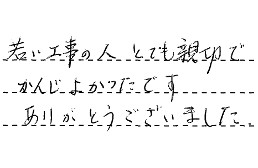 若い工事の人 とても親切で
かんじよかったです
ありがとうございました。